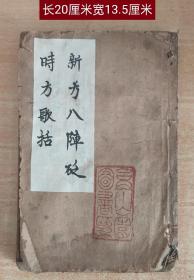 长20厘米宽13.5厘米
新方八陣砭
時方歌括